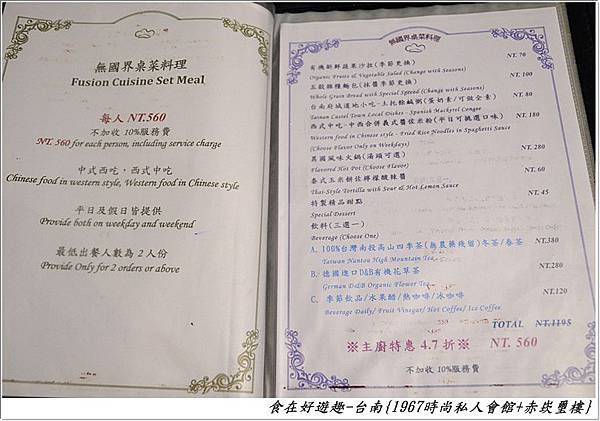 無國界桌菜料理
Fusion Cuisine Set Meal
每人 NT.560
不加收 10%服務費
NT. 560 for each person, including service charge
中式西吃，西式中吃
Chinese food in western style, Western food in Chinese style
平日及假日皆提供
Provide both on weekday and weekend
最低出餐人數為 2 人份
Provide Only for 2 orders or above
無國界桌菜料理
有機新鮮蔬果沙拉(季節更換) NT. 70
Organic Fruits & Vegetable Salad (Change with Seasons)
五穀雜糧麵包(抹醬季節更換) NT. 100
Whole Grain Bread with Special Spread (Change with Seasons)
台南府城道地小吃-土托餘鹹粥(蛋奶素/可做全素) NT. 80
Tainan Castel Town Local Dishes - Spanish Mackerel Congee
西式中吃-中西合併義式醬佐米粉(平日可挑選口味) NT. 180
Western food in Chinese style - Fried Rice Noodles in Spaghetti Sauce
(Choose Flavor Only on Weekdays)
異國風味火鍋(湯頭可選) NT. 280
Flavored Hot Pot (Choose Flavor)
泰式玉米餅佐檸檬酸辣醬 NT. 60
Thai-Style Tortilla with Sour & Hot Lemon Sauce
特製精品甜點 NT. 45
Special Dessert
飲料(三選一)
Beverage (Choose One)
A. 100%台灣南投高山四季茶(無農藥殘留)冬茶/春茶 NT.380
Taiwan Nantou High Mountain Tea
B. 德國進口D&B有機花草茶 NT.280
German D&B Organic Flower Tea
C. 季節飲品/水果醋/熱咖啡/冰咖啡 NT.120
Beverage Daily/ Fruit Vinegar/ Hot Coffee/ Ice Coffee
TOTAL NT.1195
※主廚特惠 4.7 折※ NT. 560
不加收 10%服務費
食在好遊趣-台南{1967時尚私人會館+赤崁璽樓}